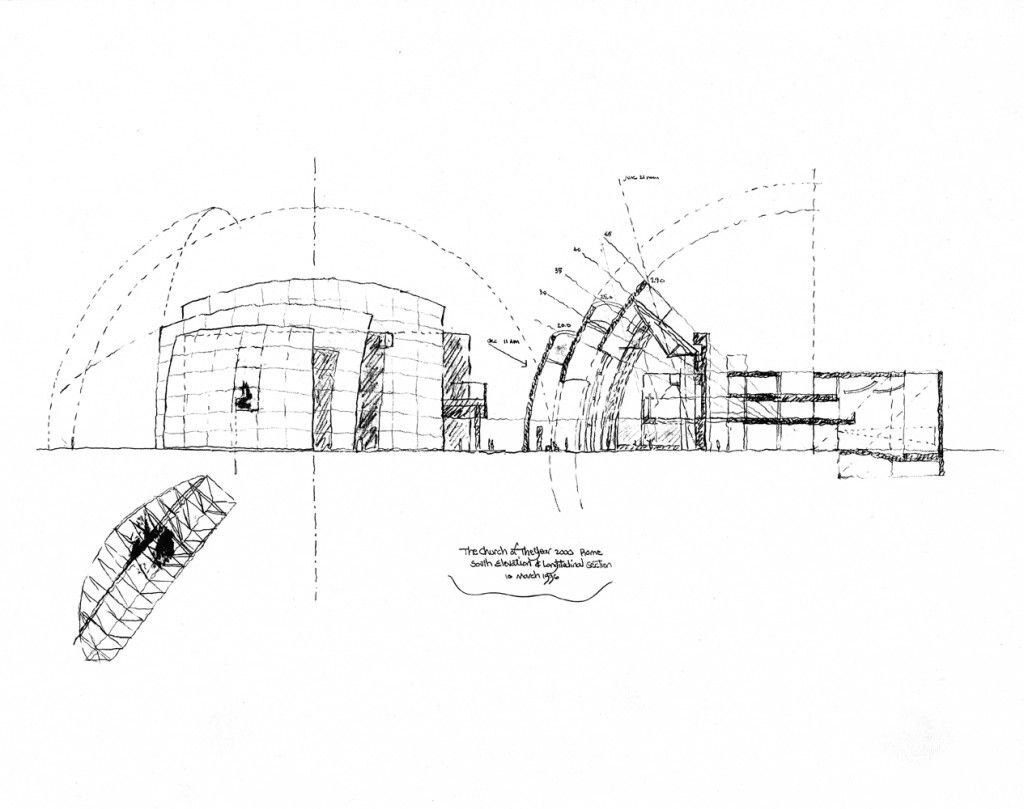 June 21 noon
65
40
35
30
29.0
25.0
20.0
Dec 12 Noon
The Church of The Year 2000 Rome
South Elevation & Longitudinal Section
10 March 1996